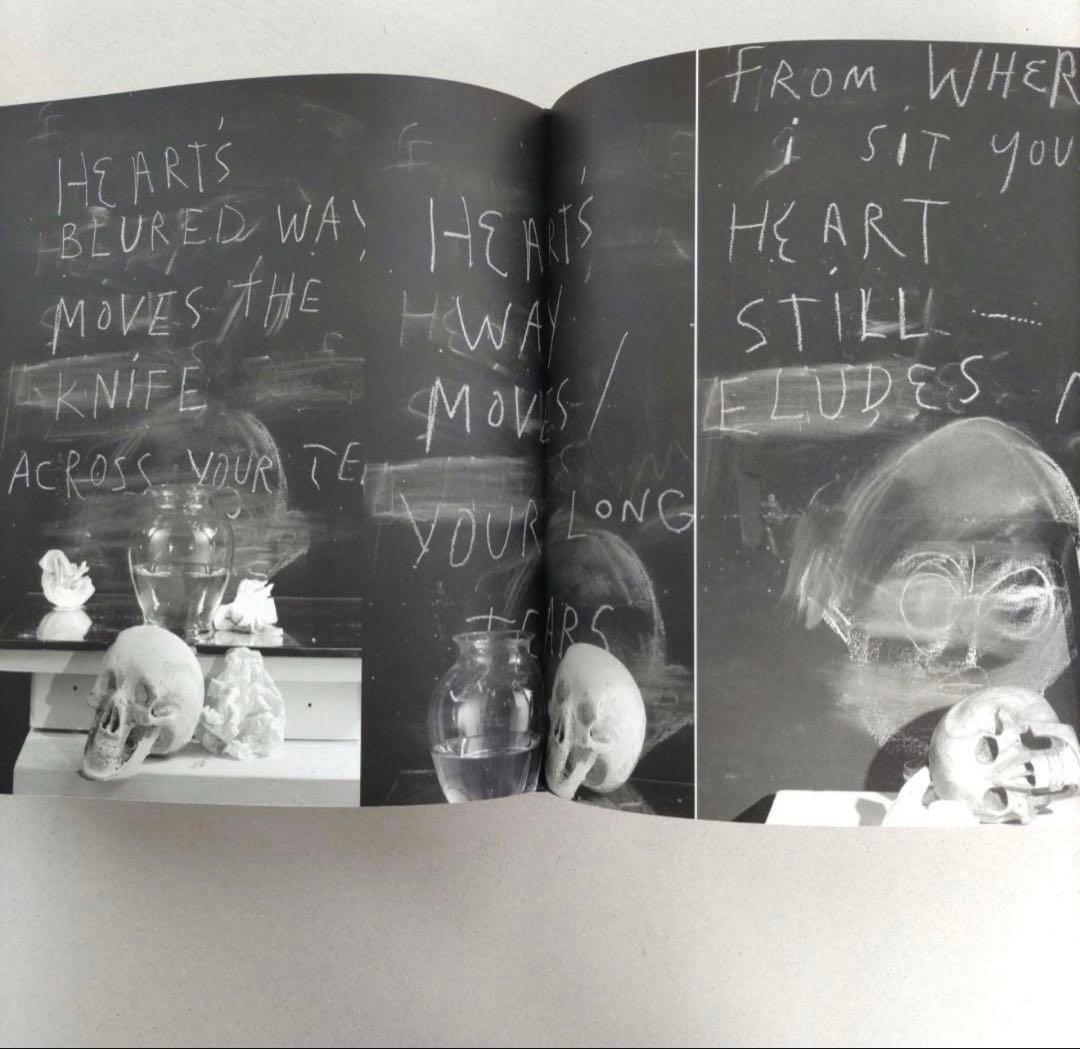 HEART'S
BLURED WAY
MOVES THE
KNIFE
ACROSS YOUR TE
HEART'S
WAY
MOVES/
YOUR LONG
TEARS
FROM WHER
i SIT YOU
HEART
STILL
ELUDES